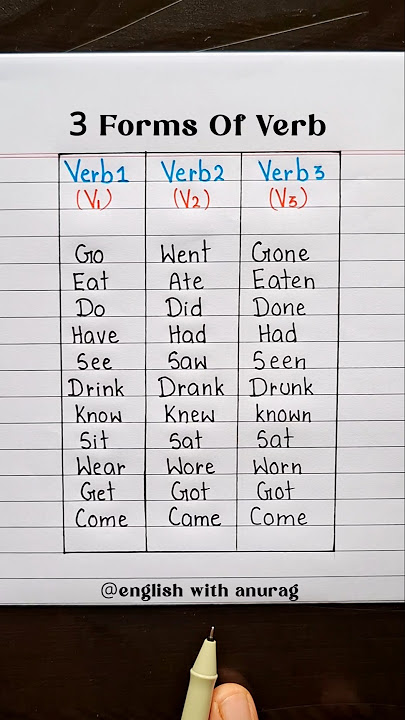 3 Forms Of Verb
Verb1 Verb2 Verb3
(V1) (V2) (V3)
Go Went Gone
Eat Ate Eaten
Do Did Done
Have Had Had
See Saw Seen
Drink Drank Drunk
Know Knew known
Sit Sat Sat
Wear Wore Worn
Get Got Got
Come Came Come
@english with anurag